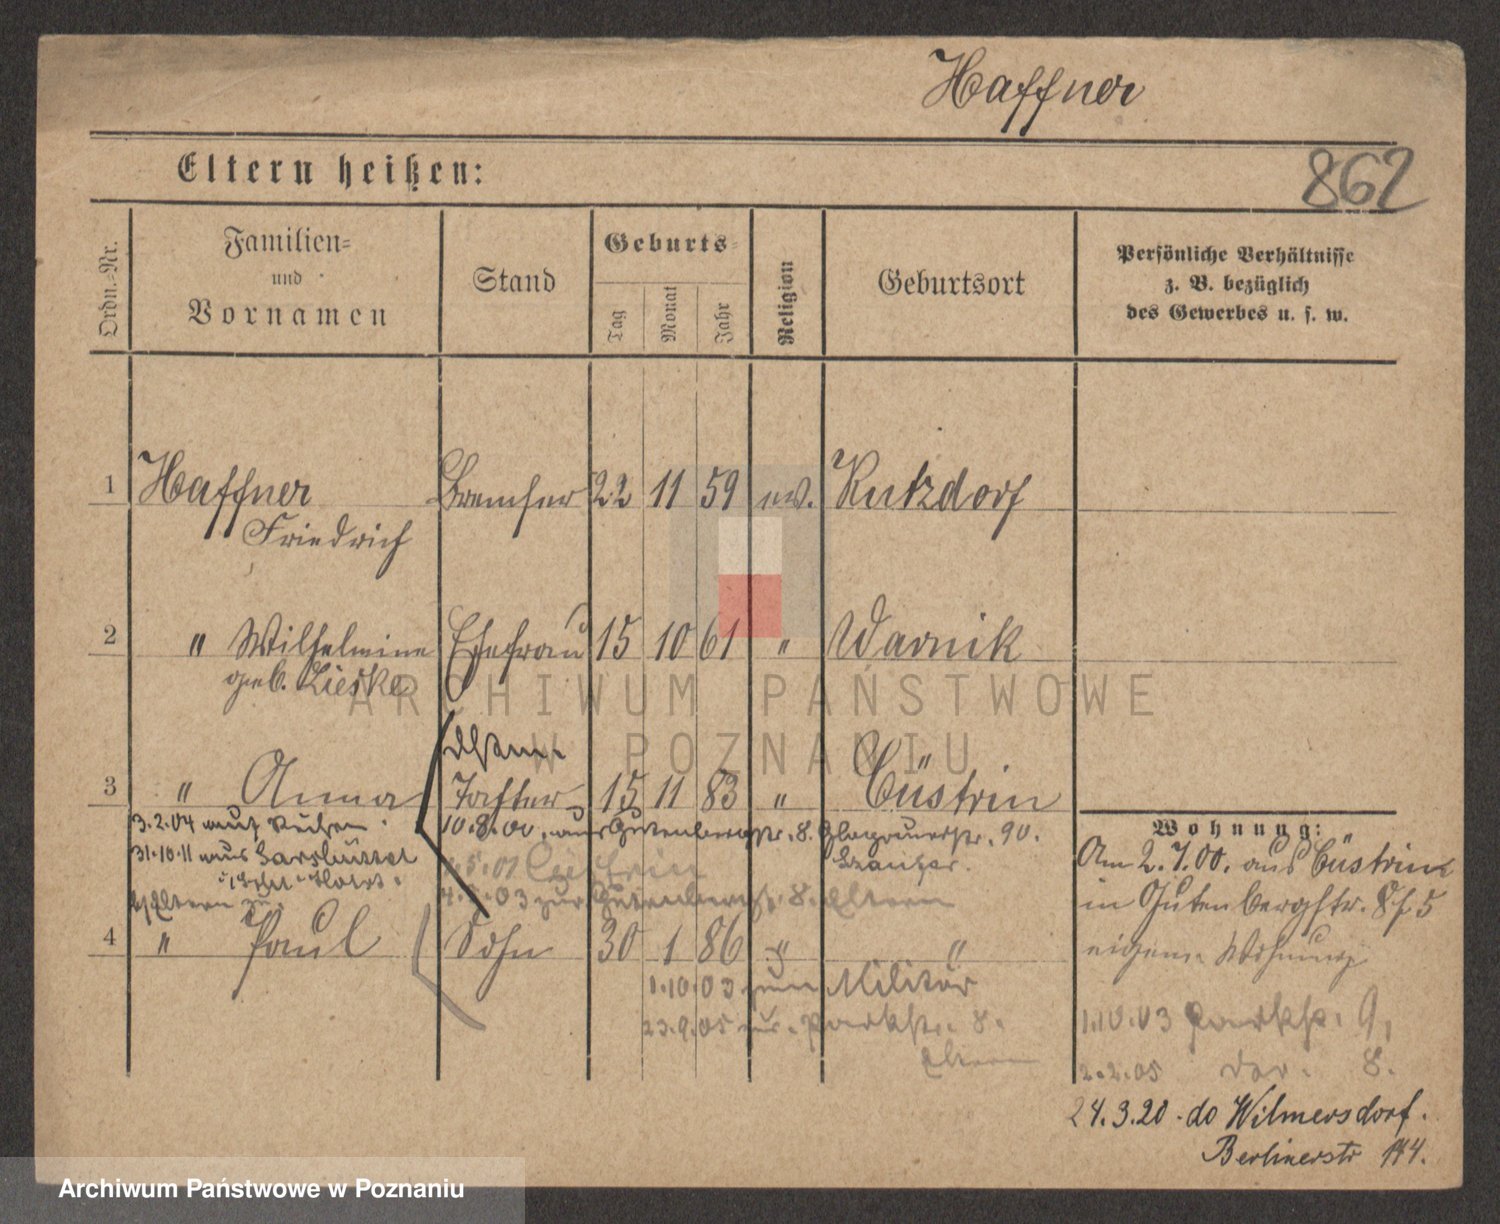 Haffner
862
Eltern heißen:
Ordn.=Nr.
Familien=
und
Vornamen
Stand
Geburts=
Tag
Monat
Jahr
Religion
Geburtsort
Persönliche Verhältnisse
z. B. bezüglich
des Gewerbes u. s. w.
1 Haffner Bremser 22 11 59 ev. Kutzdorf
Friedrich
2 " Wilhelmine Ehefrau 15 10 61 " Warnik
geb. Lieske
3 " Anna Tochter 15 11 83 " Cüstrin
3.2.04 nach
10.8.00. aus Gutenbergstr. 8. Glogauerstr. 90.
31.10.11 aus
5.01 Cüstrin
03 zur Gutenbergstr. 8. Eltern
4 " Paul Sohn 30 1 86 " "
1.10.03 zum Militär
23.9.05 Parkstr. 8.
Eltern
Wohnung:
Am 2.7.00. aus Cüstrin
in Gutenbergstr. 8 5
eigene Wohnung
1.10.03 Parkstr. 9,
2.2.05 8.
24.3.20. do Wilmersdorf.
Berlinerstr 144.
ARCHIWUM PAŃSTWOWE
W POZNANIU
Archiwum Państwowe w Poznaniu